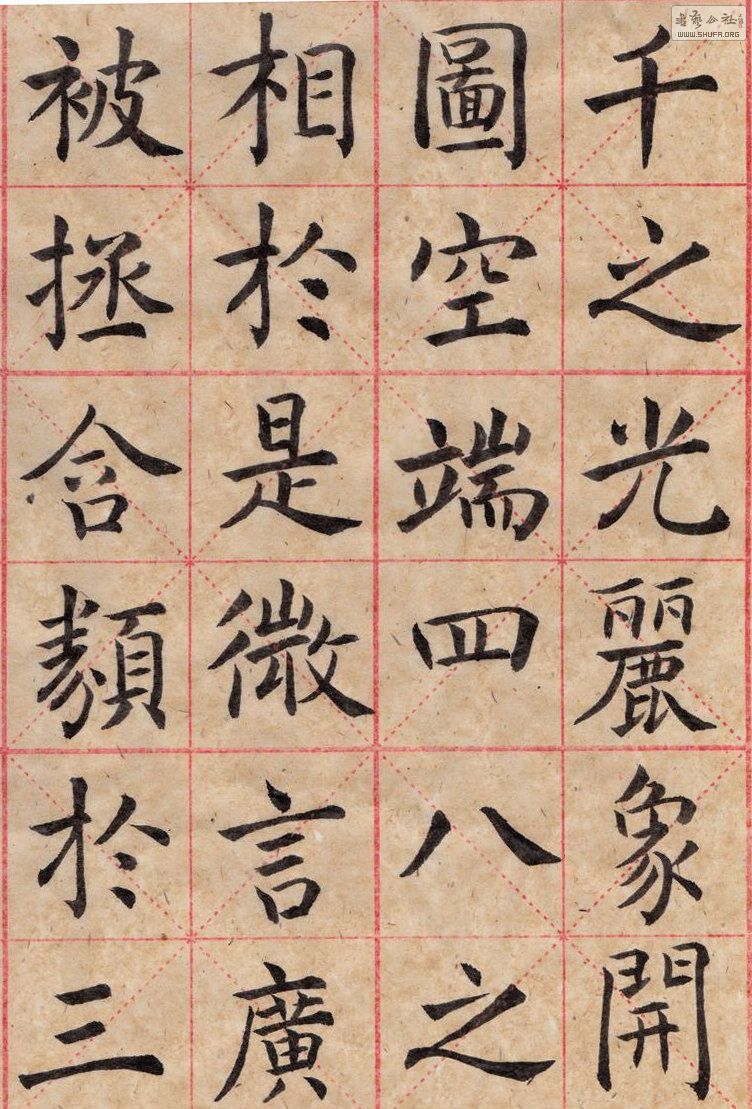 千之光麗象開
圖空端四八之
相於是微言廣
被拯含類於三
書藝公社
WWW.SHUFA.ORG